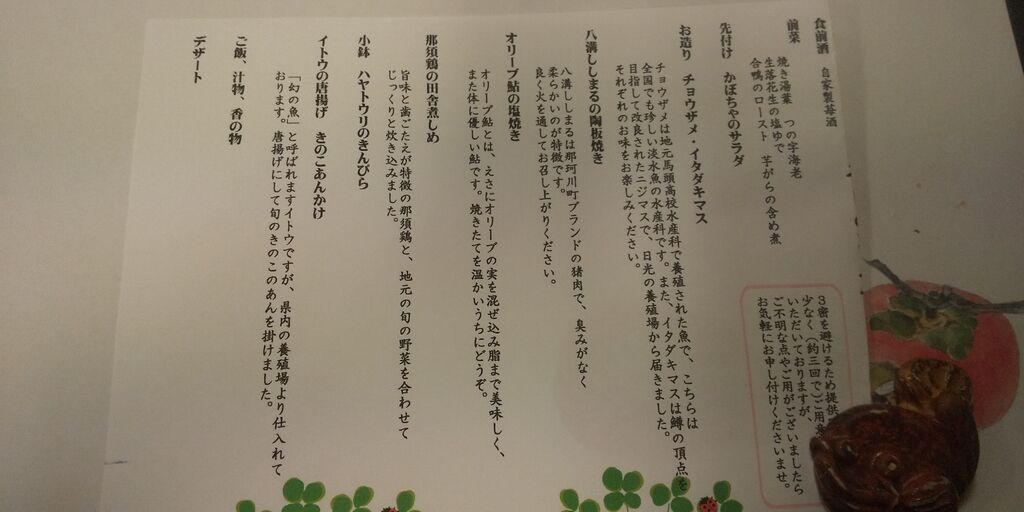 食前酒 自家製苺酒
前菜
焼き湯葉 つの字海老
生落花生の塩ゆで
合鴨のロースト 芋がらの含め煮
先付け かぼちゃのサラダ
お造り チョウザメ・イタダキマス
チョウザメは地元馬頭高校水産科で養殖された魚で、こちらは
全国でも珍しい淡水魚の水産科です。また、イタダキマスは鱒の頂点を
目指して改良されたニジマスで、日光の養殖場から届きました。
それぞれのお味をお楽しみください。
八溝ししまるの陶板焼き
八溝ししまるは那珂川町ブランドの猪肉で、臭みがなく
柔らかいのが特徴です。
良く火を通してお召し上がりください。
オリーブ鮎の塩焼き
オリーブ鮎とは、えさにオリーブの実を混ぜ込み脂まで美味しく、
また体に優しい鮎です。焼きたてを温かいうちにどうぞ。
那須鶏の田舎煮しめ
旨味と歯ごたえが特徴の那須鶏と、地元の旬の野菜を合わせて
じっくりと炊き込みました。
小鉢 ハヤトウリのきんぴら
イトウの唐揚げ きのこあんかけ
「幻の魚」と呼ばれますイトウですが、県内の養殖場より仕入れて
おります。唐揚げにして旬のきのこのあんを掛けました。
ご飯、汁物、香の物
デザート
3密を避けるため提供
少なく(約三回でご用意
いただいておりますが、
ご不明な点やご用がございましたら
お気軽にお申し付けくださいませ。